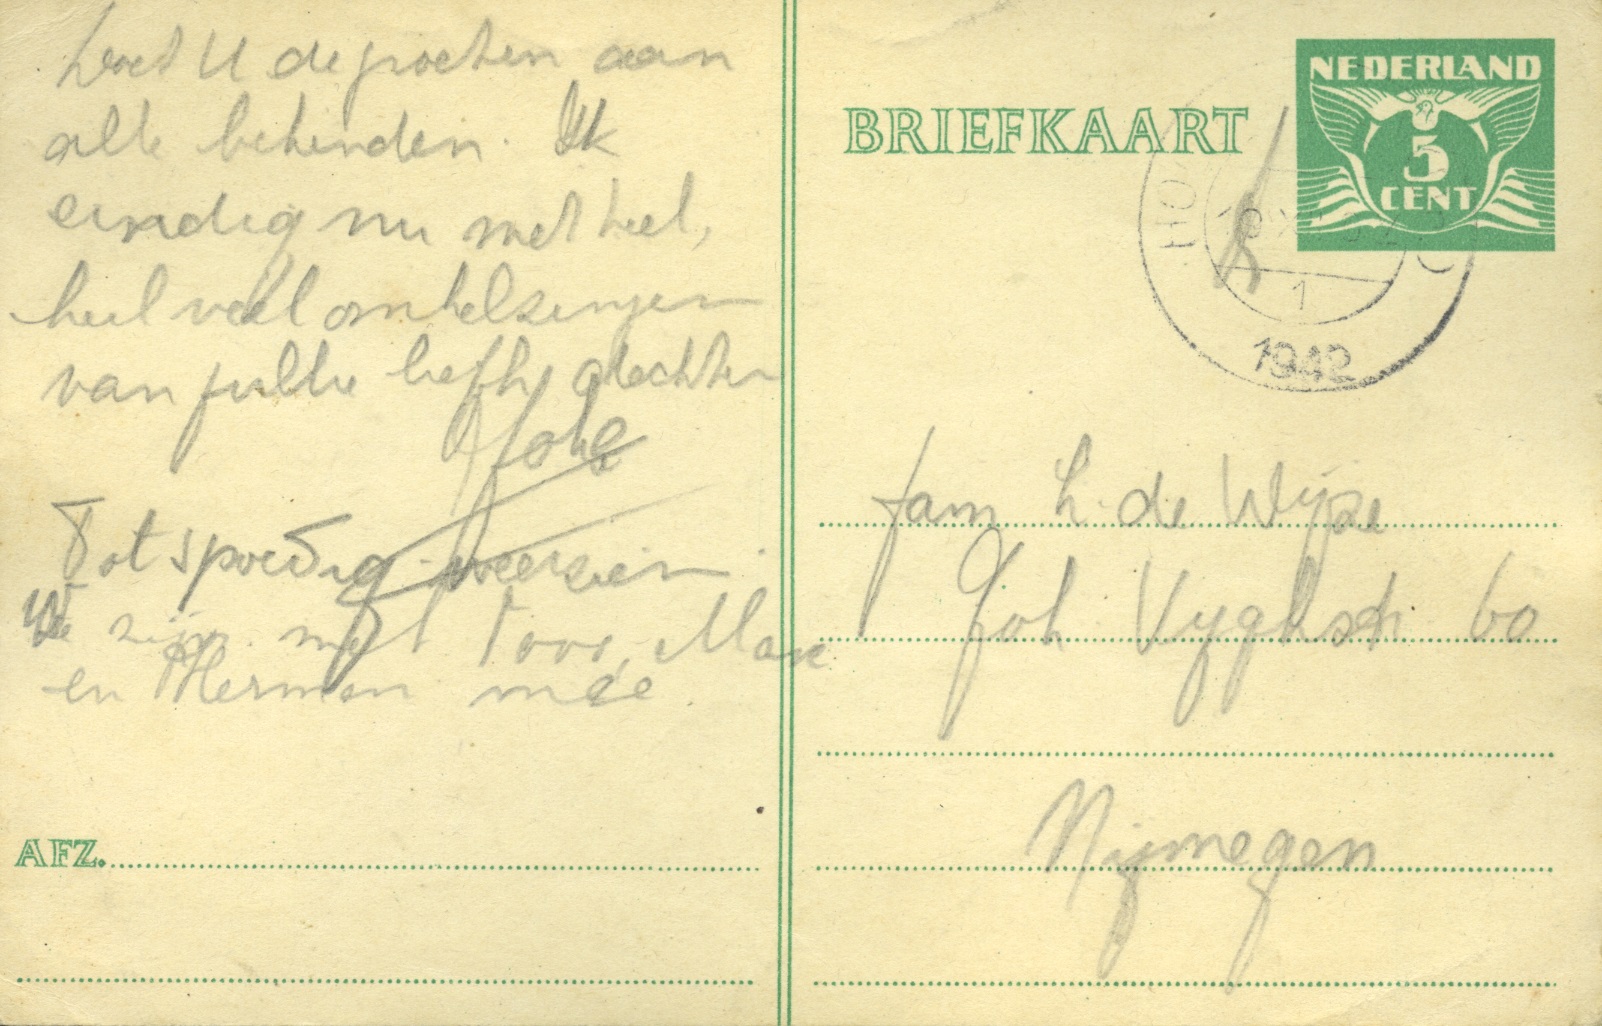 U de groeten aan
alle bekenden. Ik
eindig nu met heel,
heel veel omhelzingen
van jullie liefh.
Tot spoedig weerzien
We zijn met Max
en Herman mee
AFZ.
BRIEFKAART
NEDERLAND
5
CENT
1
1942
fam de Wijze
Joh Vijghstr 60
Nijmegen